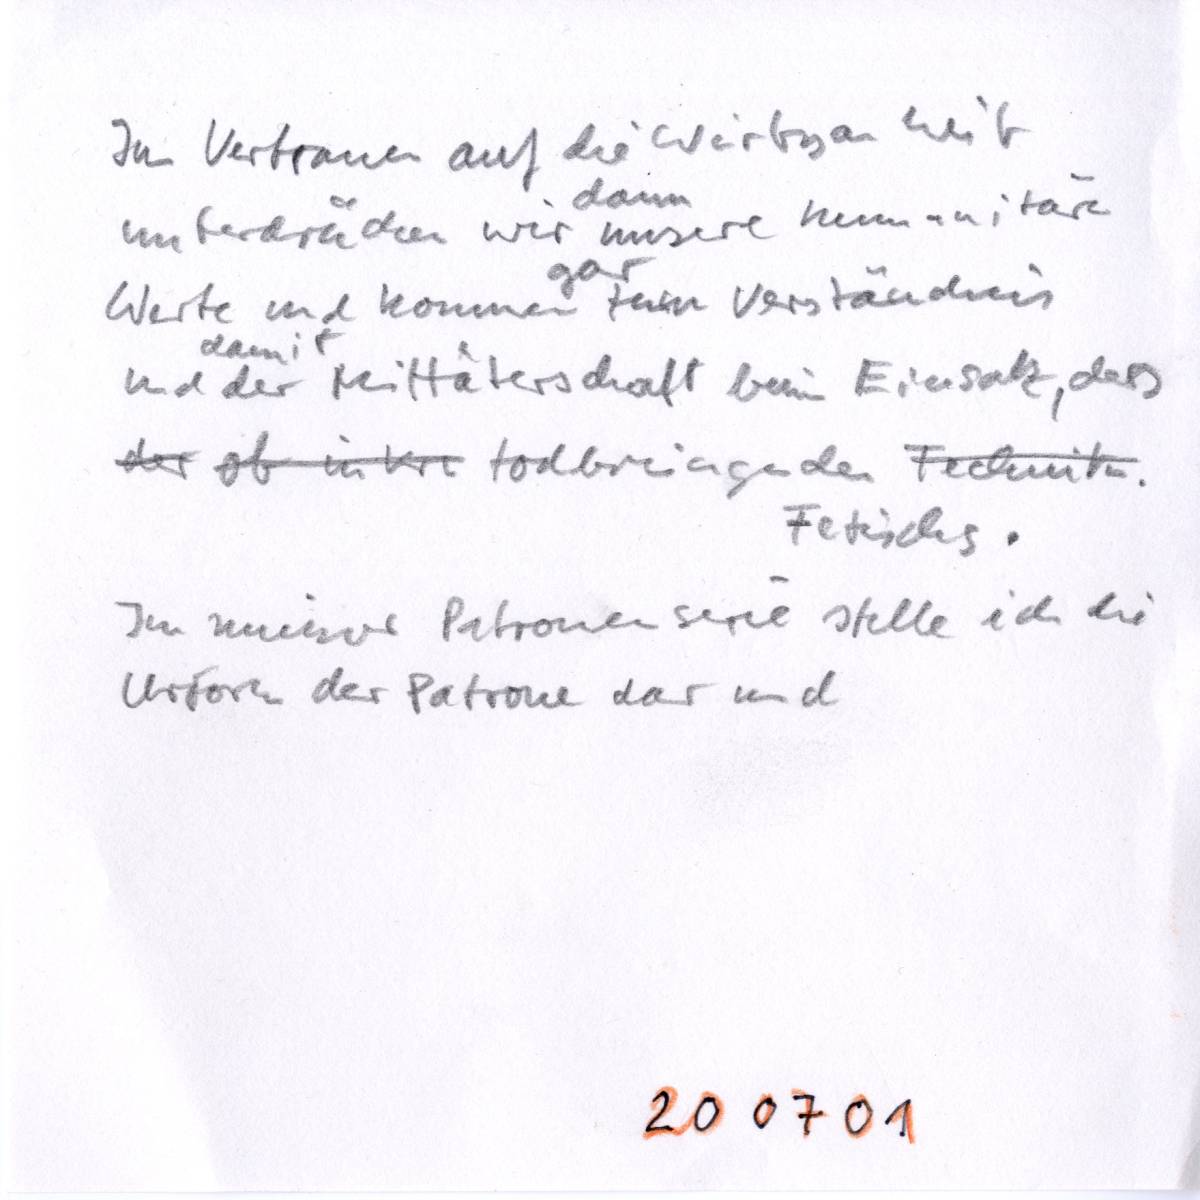 Im Vertrauen auf die Wirksamkeit
dann
unterdrücken wir unsere humanitäre
gar
Werte und kommen zum Verständnis
damit
und der Mittäterschaft beim Einsatz, des
der ob in ihre todbringenden Technik.
Fetischs.
In meiner Patronenserie stelle ich die
Urform der Patrone dar und
20 07 01